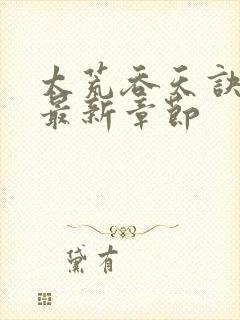 大荒吞天诀
最新章节
黛有